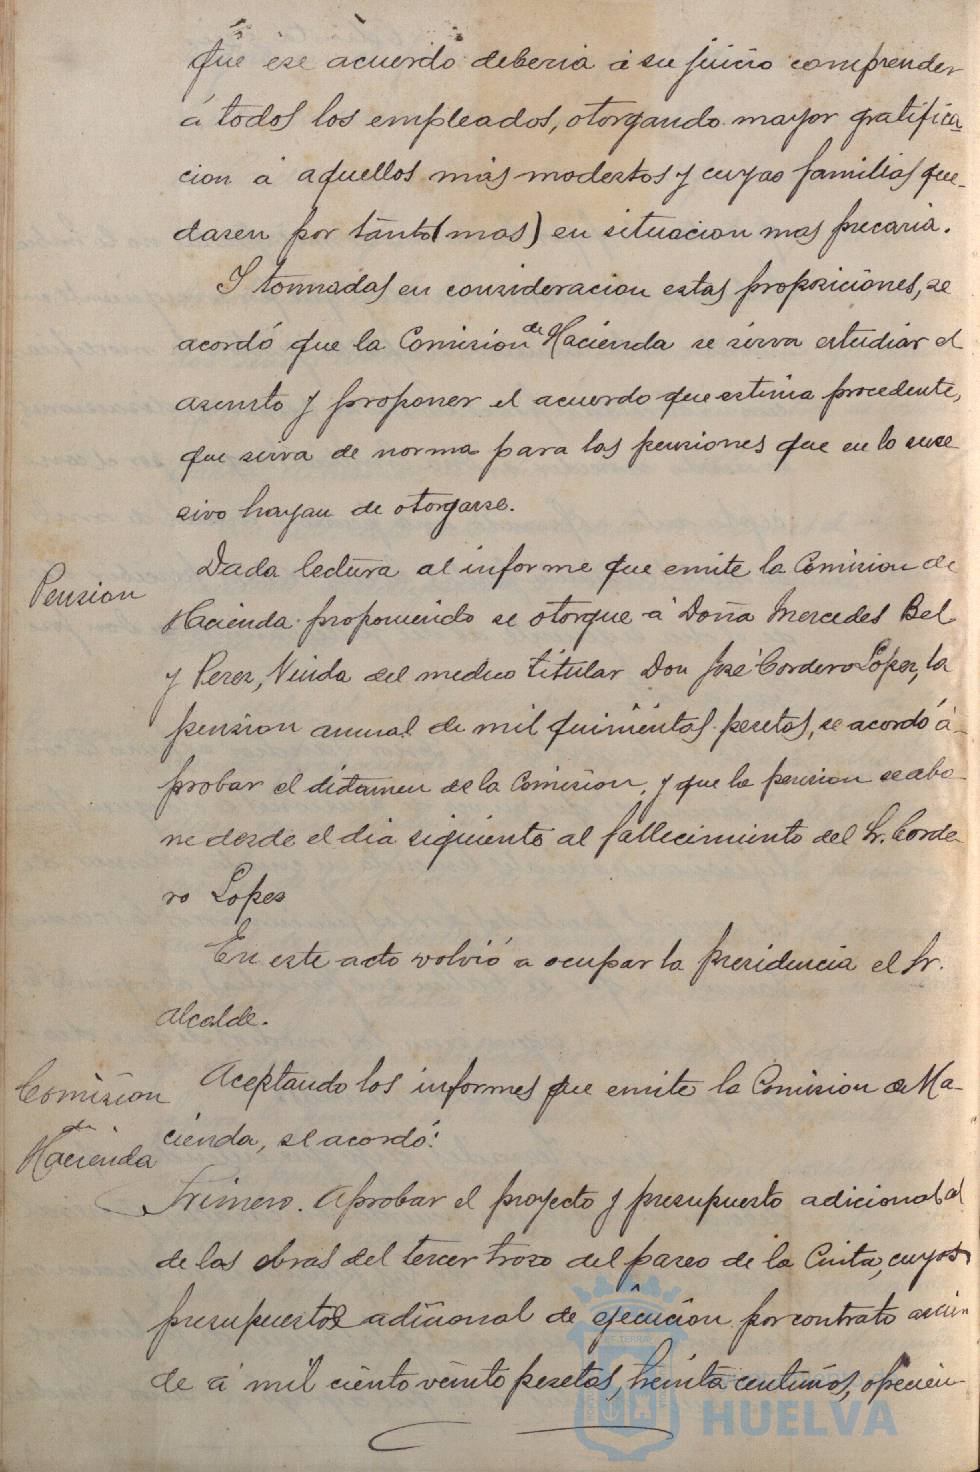 que ese acuerdo deberia á su juicio comprender
á todos los empleados, otorgando mayor gratifica
cion á aquellos más modestos y cuyas familias que-
dasen por tánto (mas) en situacion mas precaria.
Y tomadas en consideracion estas proposiciones, se
acordó que la Comision de Hacienda se sirva estudiar el
asunto y proponer el acuerdo que estima procedente,
que sirva de norma para las pensiones que en lo suce
sivo hayan de otorgarse.
Pension
Dada lectura al informe que emite la Comision de
Hacienda proponiendo se otorgue á Doña Mercedes Bel
y Perez, Viuda del medico titular Don José Cordero Lopez, la
pension anual de mil quinientas pesetas, se acordó á-
probar el dictamen de la Comision, y que la pension se abo-
ne desde el dia siguiente al fallecimiento del Sr. Corde-
ro Lopez
En este acto volvió a ocupar la presidencia el Sr.
Alcalde.
Comision
de
Hacienda
Aceptando los informes que emite la Comision de Ha-
cienda, se acordó:
Primero. Aprobar el proyecto y presupuesto adicional al
de las obras del tercer trozo del paseo de la Cinta, cuyos
presupuestos adicional de ejecucion por contrato ascien-
de á mil ciento veinte pesetas, treinta centimos,
HUELVA